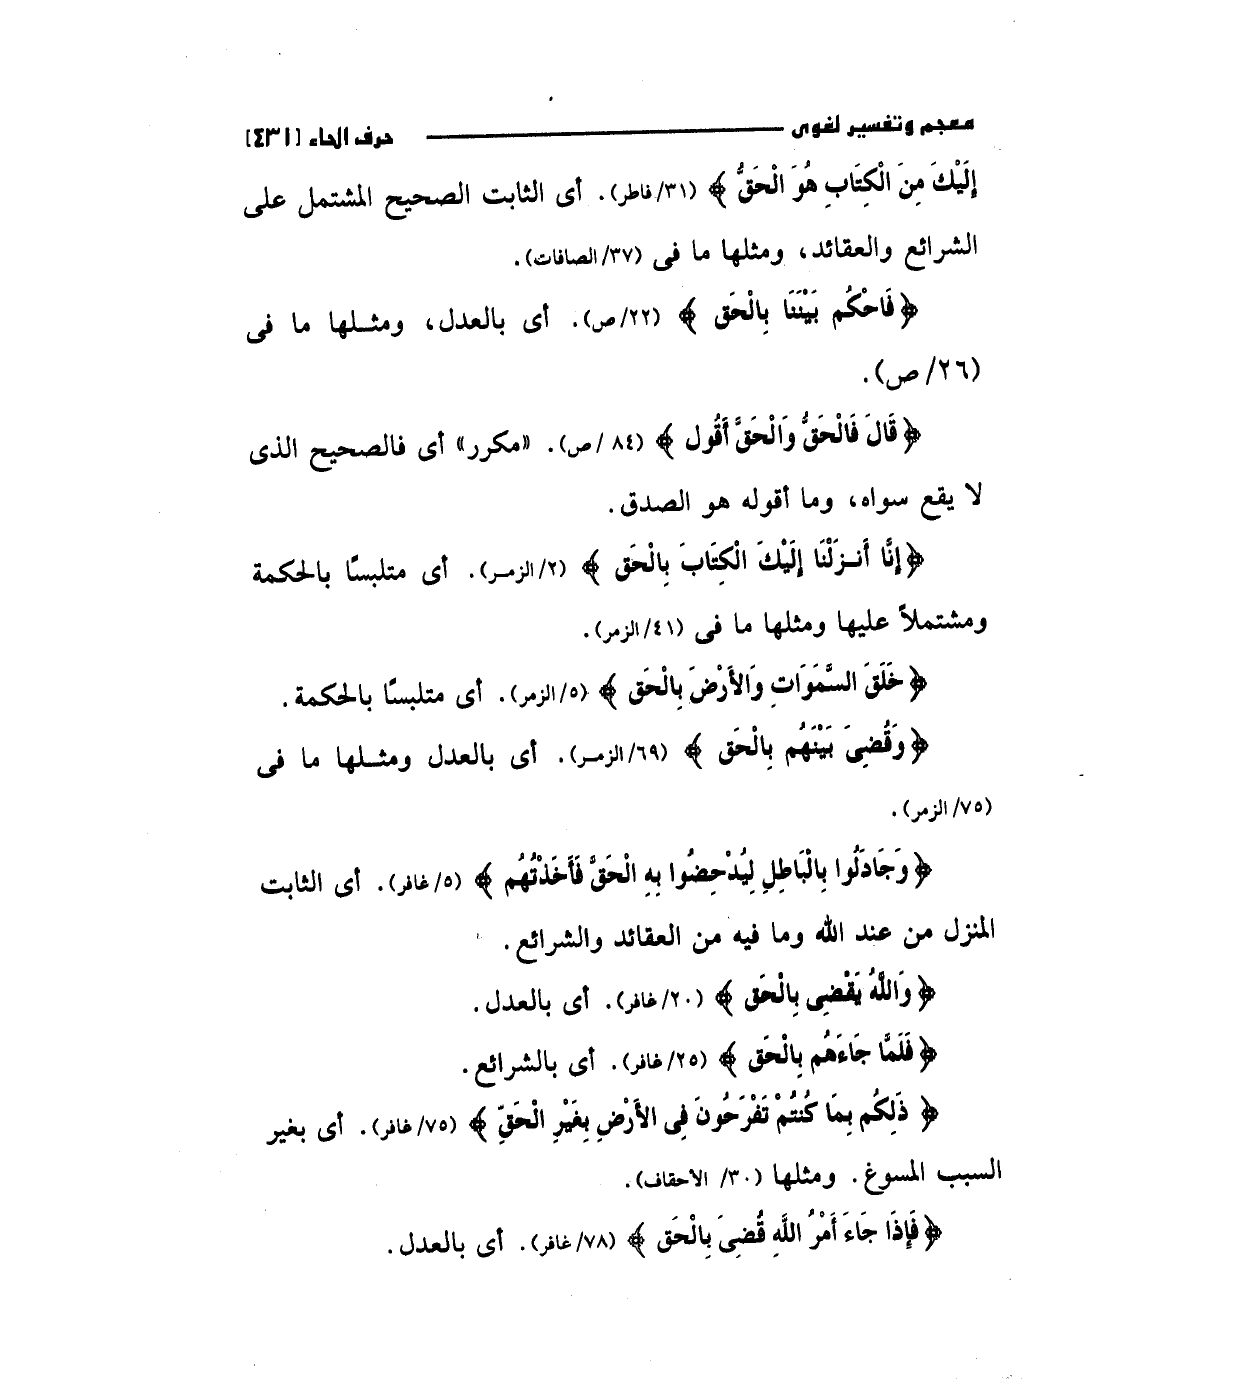 معجم وتفسير لغوى ــــــــــ حرف الحاء [٤٣١]
إِلَيْكَ مِنَ الْكِتَابِ هُوَ الْحَقُّ ﴾ (٣١/فاطر). أى الثابت الصحيح المشتمل على
الشرائع والعقائد، ومثلها ما فى (٣٧/الصافات).
﴿ فَاحْكُم بَيْنَنَا بِالْحَق ﴾ (٢٢/ص). أى بالعدل، ومثـلها ما فى
(٢٦/ ص).
﴿ قَالَ فَالْحَقُّ وَالْحَقَّ أَقُول ﴾ (٨٤ /ص). «مكرر» أى فالصحيح الذى
لا يقع سواه، وما أقوله هو الصدق.
﴿ إِنَّا أَنـزَلْنَا إِلَيْكَ الْكِتَابَ بِالْحَق ﴾ (٢/الزمـر). أى متلبسًا بالحكمة
ومشتملاً عليها ومثلها ما فى (٤١/الزمر).
﴿ خَلَقَ السَّمَوَاتِ وَالأَرْضَ بِالْحَق ﴾ (٥/الزمر). أى متلبسًا بالحكمة.
﴿ وَقُضِىَ بَيْنَهُم بِالْحَق ﴾ (٦٩/الزمـر). أى بالعدل ومثـلها ما فى
(٧٥/الزمر).
﴿ وَجَادَلُوا بِالْبَاطِلِ لِيُدْحِضُوا بِهِ الْحَقَّ فَأَخَذْتُهُم ﴾ (٥/غافر). أى الثابت
المنزل من عند الله وما فيه من العقائد والشرائع.
﴿ وَاللَّهُ يَقْضِى بِالْحَق ﴾ (٢٠/غافر). أى بالعدل.
﴿ فَلَمَّا جَاءَهُم بِالْحَق ﴾ (٢٥/غافر). أى بالشرائع.
﴿ ذَلِكُم بِمَا كُنتُمْ تَفْرَحُونَ فِى الأَرْضِ بِغَيْرِ الْحَقِّ ﴾ (٧٥/غافر). أى بغير
السبب المسوغ. ومثلها (٣٠/ الأحقاف).
﴿ فَإِذَا جَاءَ أَمْرُ اللَّهِ قُضِىَ بِالْحَق ﴾ (٧٨/غافر). أى بالعدل.